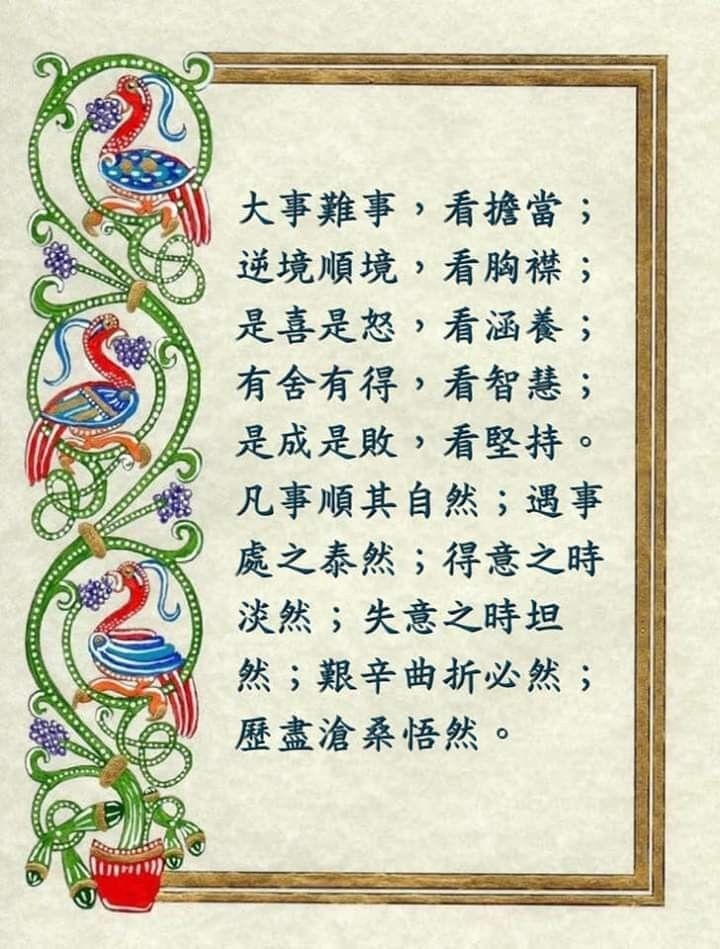 大事難事，看擔當；
逆境順境，看胸襟；
是喜是怒，看涵養；
有舍有得，看智慧；
是成是敗，看堅持。
凡事順其自然；遇事
處之泰然；得意之時
淡然；失意之時坦
然；艱辛曲折必然；
歷盡滄桑悟然。